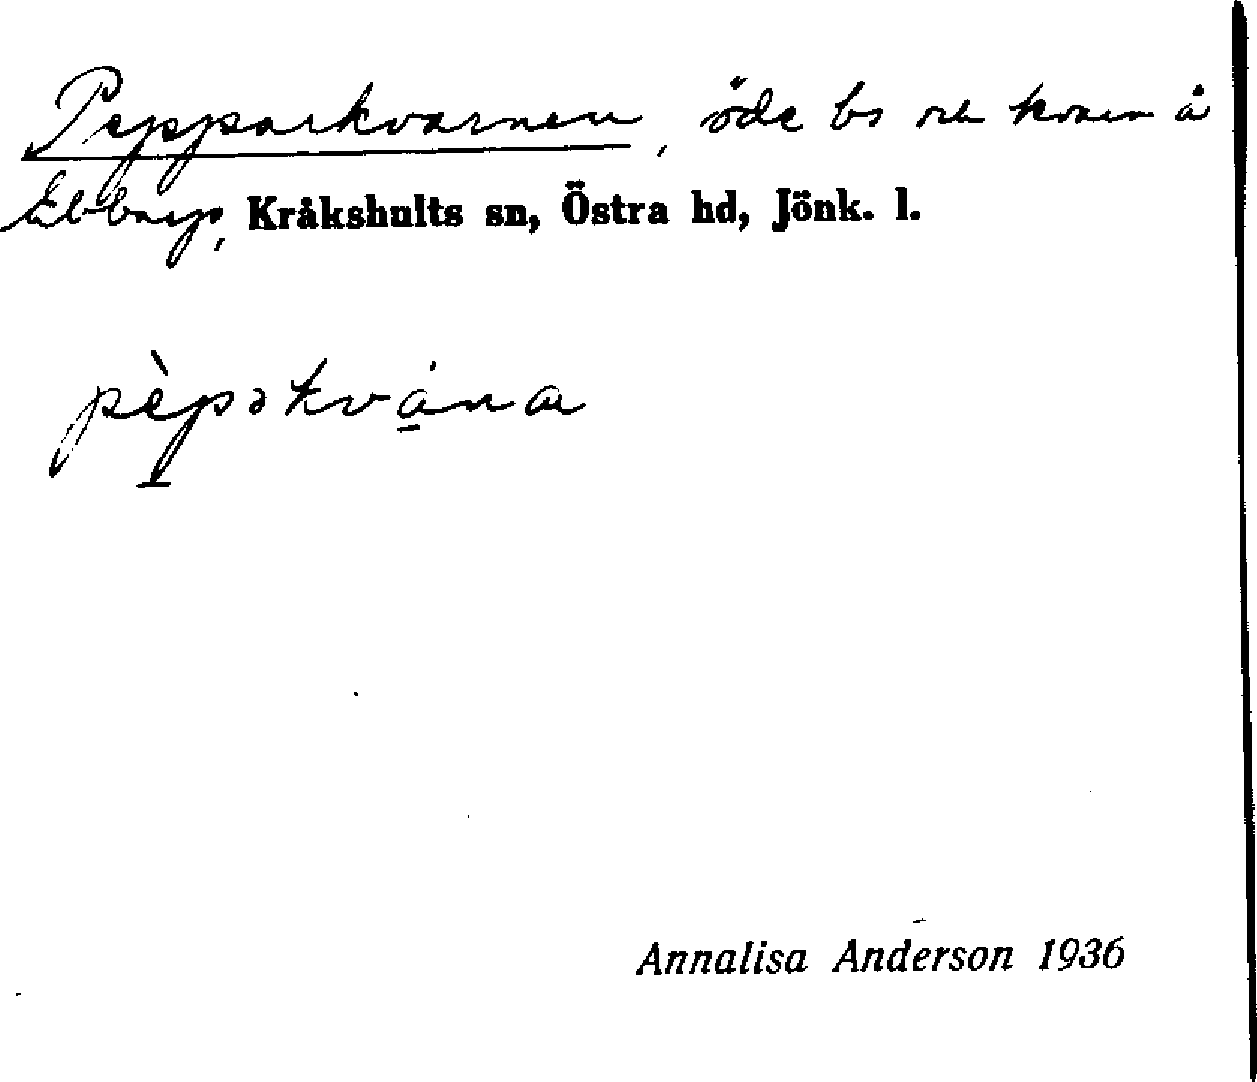 Pepparkvarnen, öde bs och kvarn å
Ebbarp, Kråkshults sn, Östra hd, Jönk. l.
pèpəkvána
Annalisa Anderson 1936